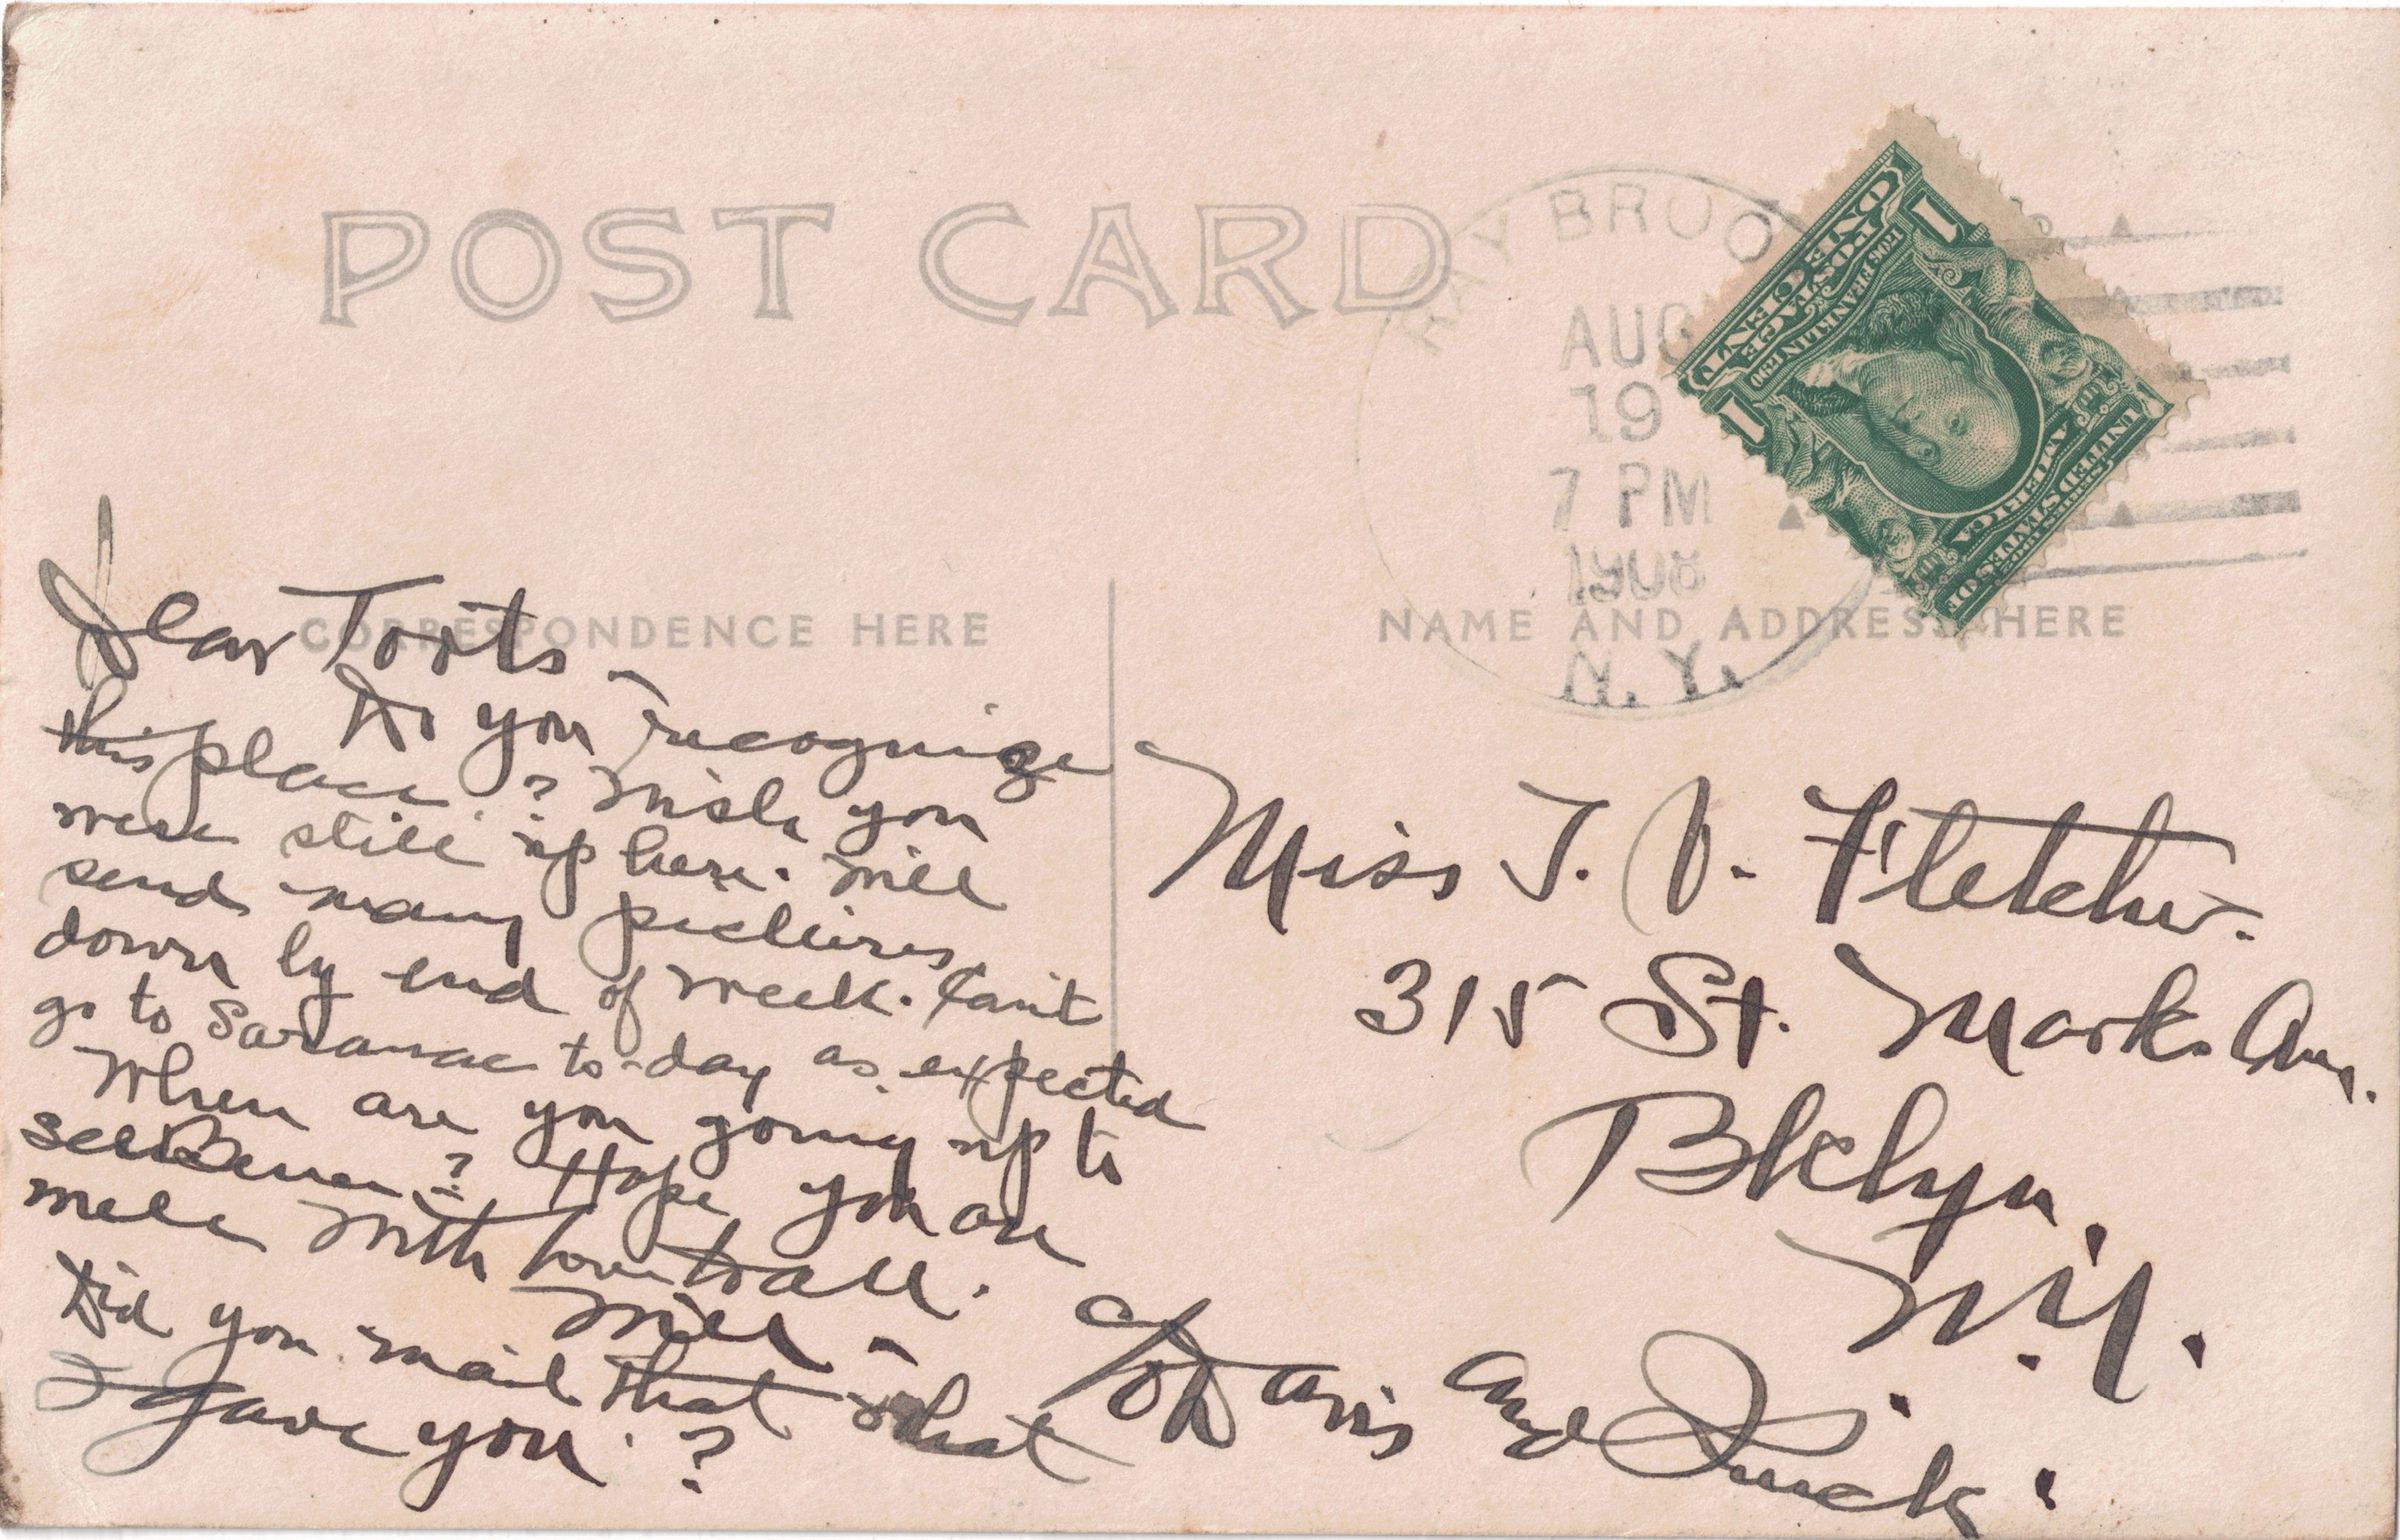 POST CARD
RAY BROO
AUG
19
7 PM
1908
N. Y.
ONE CENT
POSTAGE
1706 FRANKLIN 1790
1
1
SERIES 1902
UNITED STATES OF
AMERICA
CORRESPONDENCE HERE
NAME AND ADDRESS HERE
Dear Toots –
Do you recognize
this place? Wish you
were still up here. Will
send many pictures
down by end of week. Can't
go to Saranac to-day as expected
When are you going up to
see ? Hope you are
well with love to all.
Will –
Did you mail that what
I gave you?
to Davis and
Miss T. V. Fletcher.
315 St. Marks Ave.
Bklyn,
N.Y.